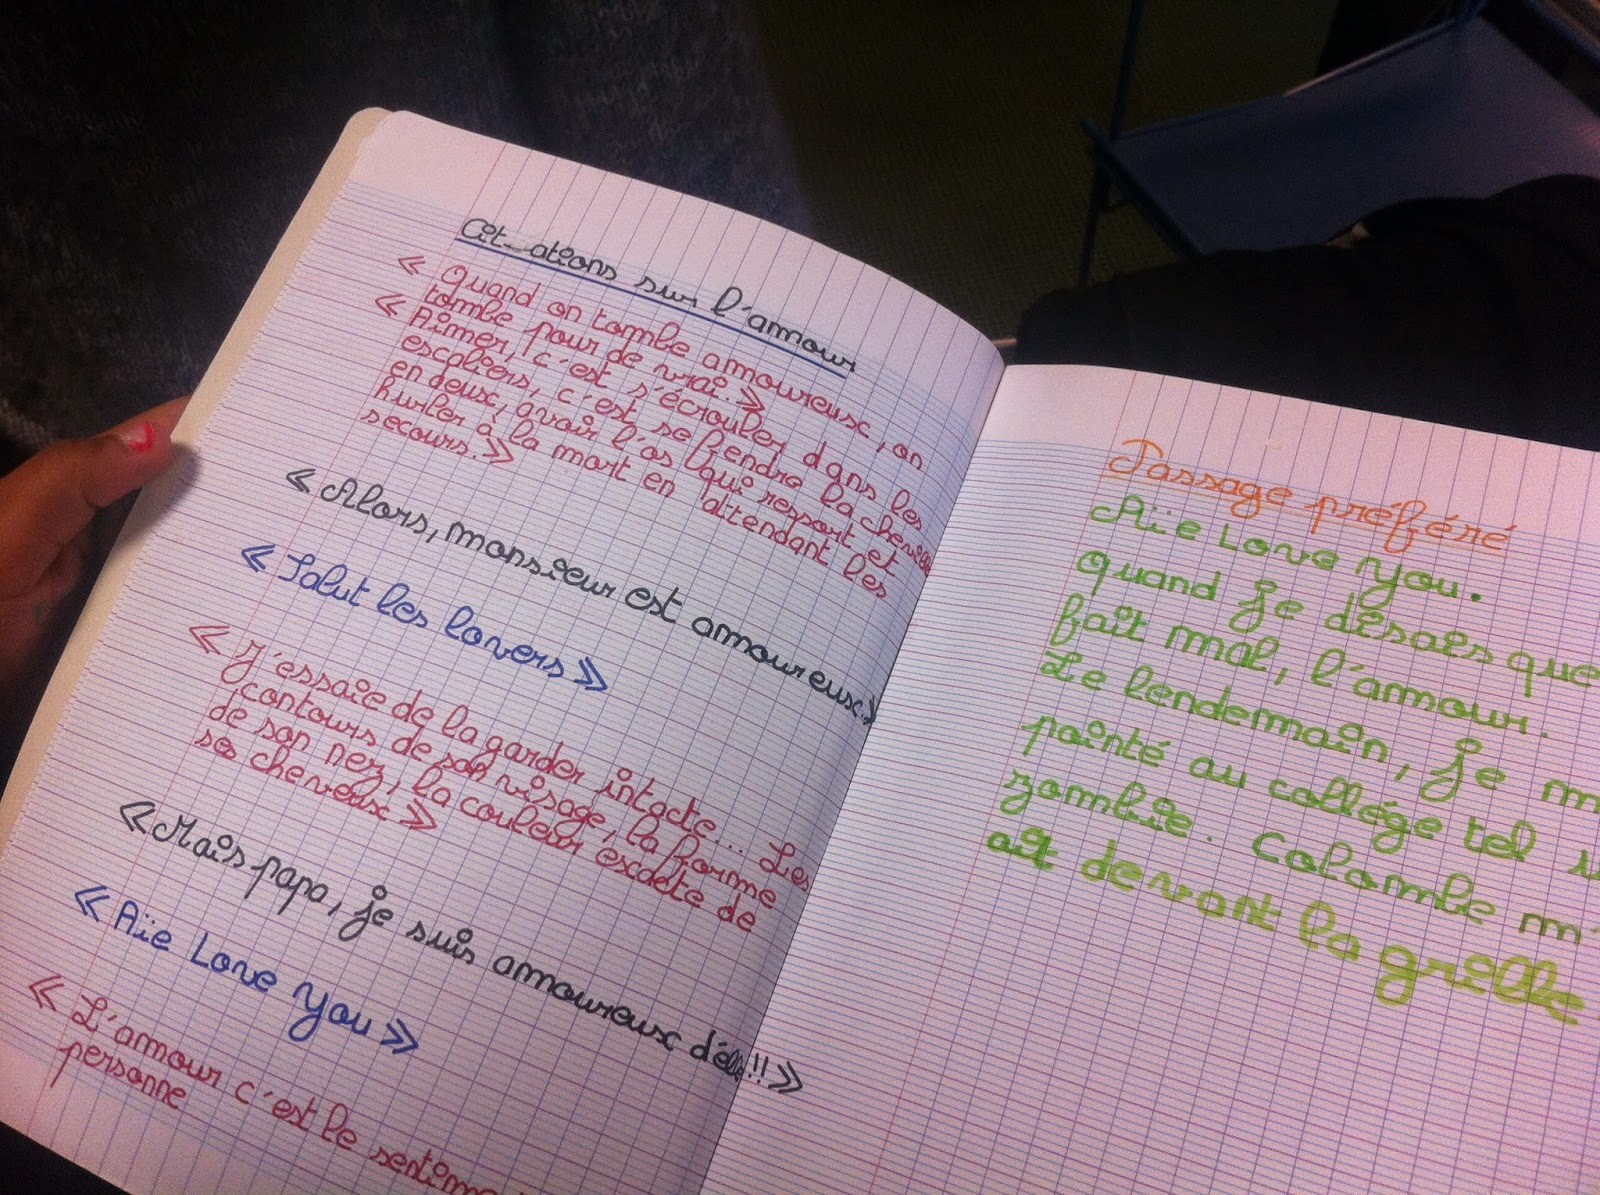 Citations sur l'amour
« Quand on tombe amoureusx, on
tombe pour de vrai. »
« Aimer, c'est s'écrouler dans les
escaliers, c'est se fendre la cheville
en deux, avoir l'os qui ressort et
hurler à la mort en attendant les
secours. »
« Alors, monsieur est amoureux. »
« Salut les lovers »
« J'essaie de la garder intacte... Les
contours de son visage, la forme
de son nez, la couleur excacte de
ses cheveux »
« Mais papa, je suis amoureux d'elle!! »
« Aïe Love You »
« L'amour c'est le sentim
personne
Passage préféré
Aïe Love You.
quand je désais que
fait mal, l'amour.
Le lendemain, je m
pointé au collége tel
zombie. Colombe m'
ait devant la grille.